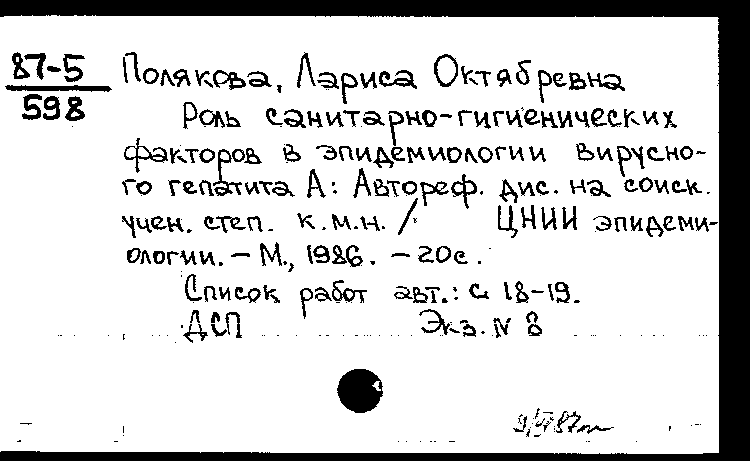 87-5
598
Полякова, Лариса Октябревна
Роль санитарно-гигиенических
факторов в эпидемиологии вирусно-
го гепатита А: Автореф. дис. на соиск.
учен. степ. к.м.н. / ЦНИИ эпидеми-
ологии. – М., 1986. – 20с.
Список работ авт.: с. 18-19.
ДСП Экз. N 8